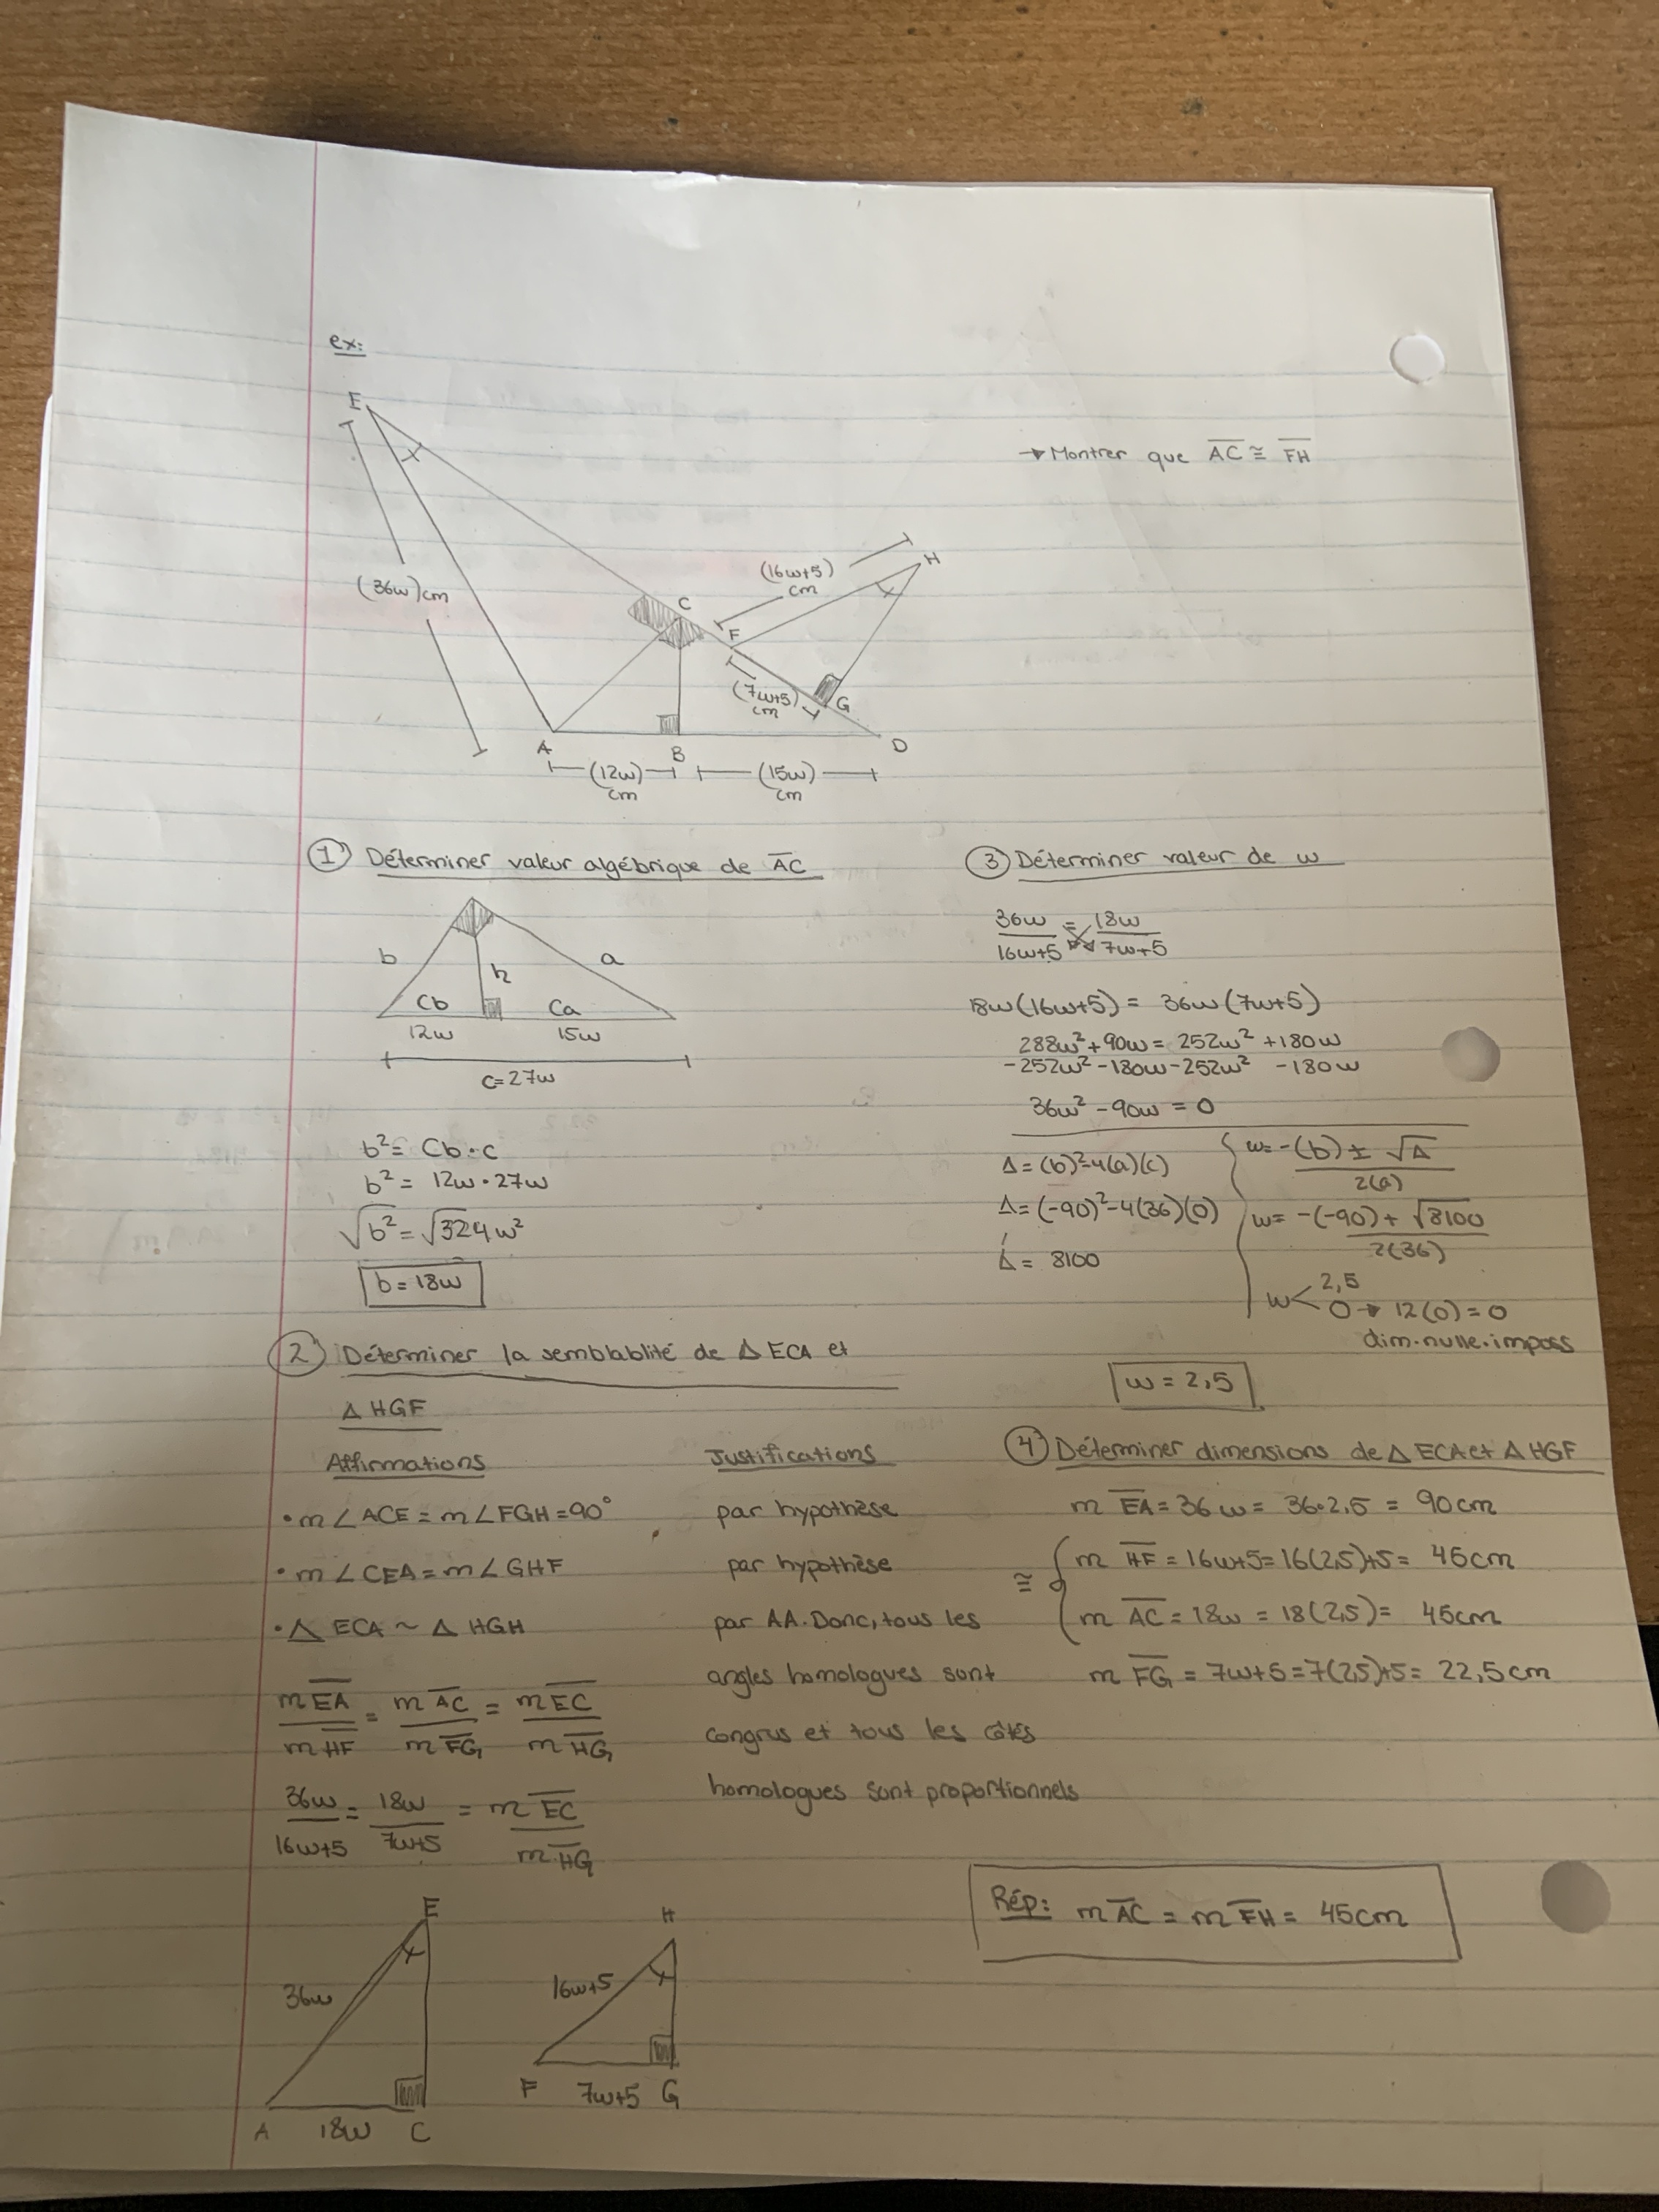 ex:
E
→ Montrer que AC ≅ FH
(36w)cm
(16w+5)
cm
H
C
F
(7w+5)
cm
G
A
B
D
(12w)
cm
(15w)
cm
1 Déterminer valeur algébrique de AC
b
h
a
Cb
Ca
12w
15w
c=27w
b² = Cb · c
b² = 12w · 27w
√b² = √324w²
b = 18w
2 Déterminer la semblablité de Δ ECA et
Δ HGF
Affirmations
Justifications
• m∠ACE = m∠FGH = 90°
par hypothèse
• m∠CEA = m∠GHF
par hypothèse
• Δ ECA ~ Δ HGH
par AA. Donc, tous les
angles homologues sont
congrus et tous les côtés
homologues sont proportionnels
mEA/mHF = mAC/mFG = mEC/mHG
36w/16w+5 = 18w/7w+5 = mEC/mHG
E
36w
A
18w
C
H
16w+5
F
7w+5
G
3 Déterminer valeur de w
36w/16w+5 = 18w/7w+5
18w(16w+5) = 36w(7w+5)
288w² + 90w = 252w² + 180w
-252w² - 180w - 252w² - 180w
36w² - 90w = 0
Δ = (b)² - 4(a)(c)
Δ = (-90)² - 4(36)(0)
Δ = 8100
w = -(b) ± √Δ / 2(a)
w = -(-90) + √8100 / 2(36)
w < 2,5
0 → 12(0) = 0
dim. nulle. imposs
w = 2,5
4 Déterminer dimensions de Δ ECA et Δ HGF
m EA = 36w = 36·2,5 = 90cm
≅ { m HF = 16w+5 = 16(2,5)+5 = 45cm
m AC = 18w = 18(2,5) = 45cm
m FG = 7w+5 = 7(2,5)+5 = 22,5cm
Rép: mAC = mFH = 45cm